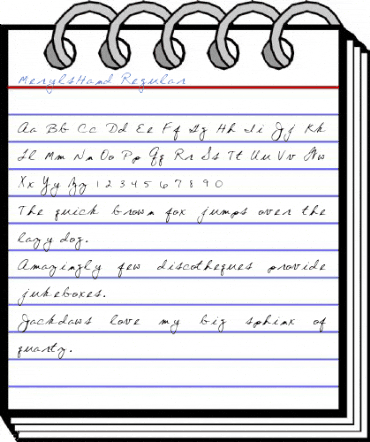 MerylsHand Regular
Aa Bb Cc Dd Ee Ff Gg Hh Ii Jj Kk
Ll Mm Nn Oo Pp Qq Rr Ss Tt Uu Vv Ww
Xx Yy Zz 1 2 3 4 5 6 7 8 9 0
The quick brown fox jumps over the
lazy dog.
Amazingly few discotheques provide
jukeboxes.
Jackdaws love my big sphinx of
quartz.